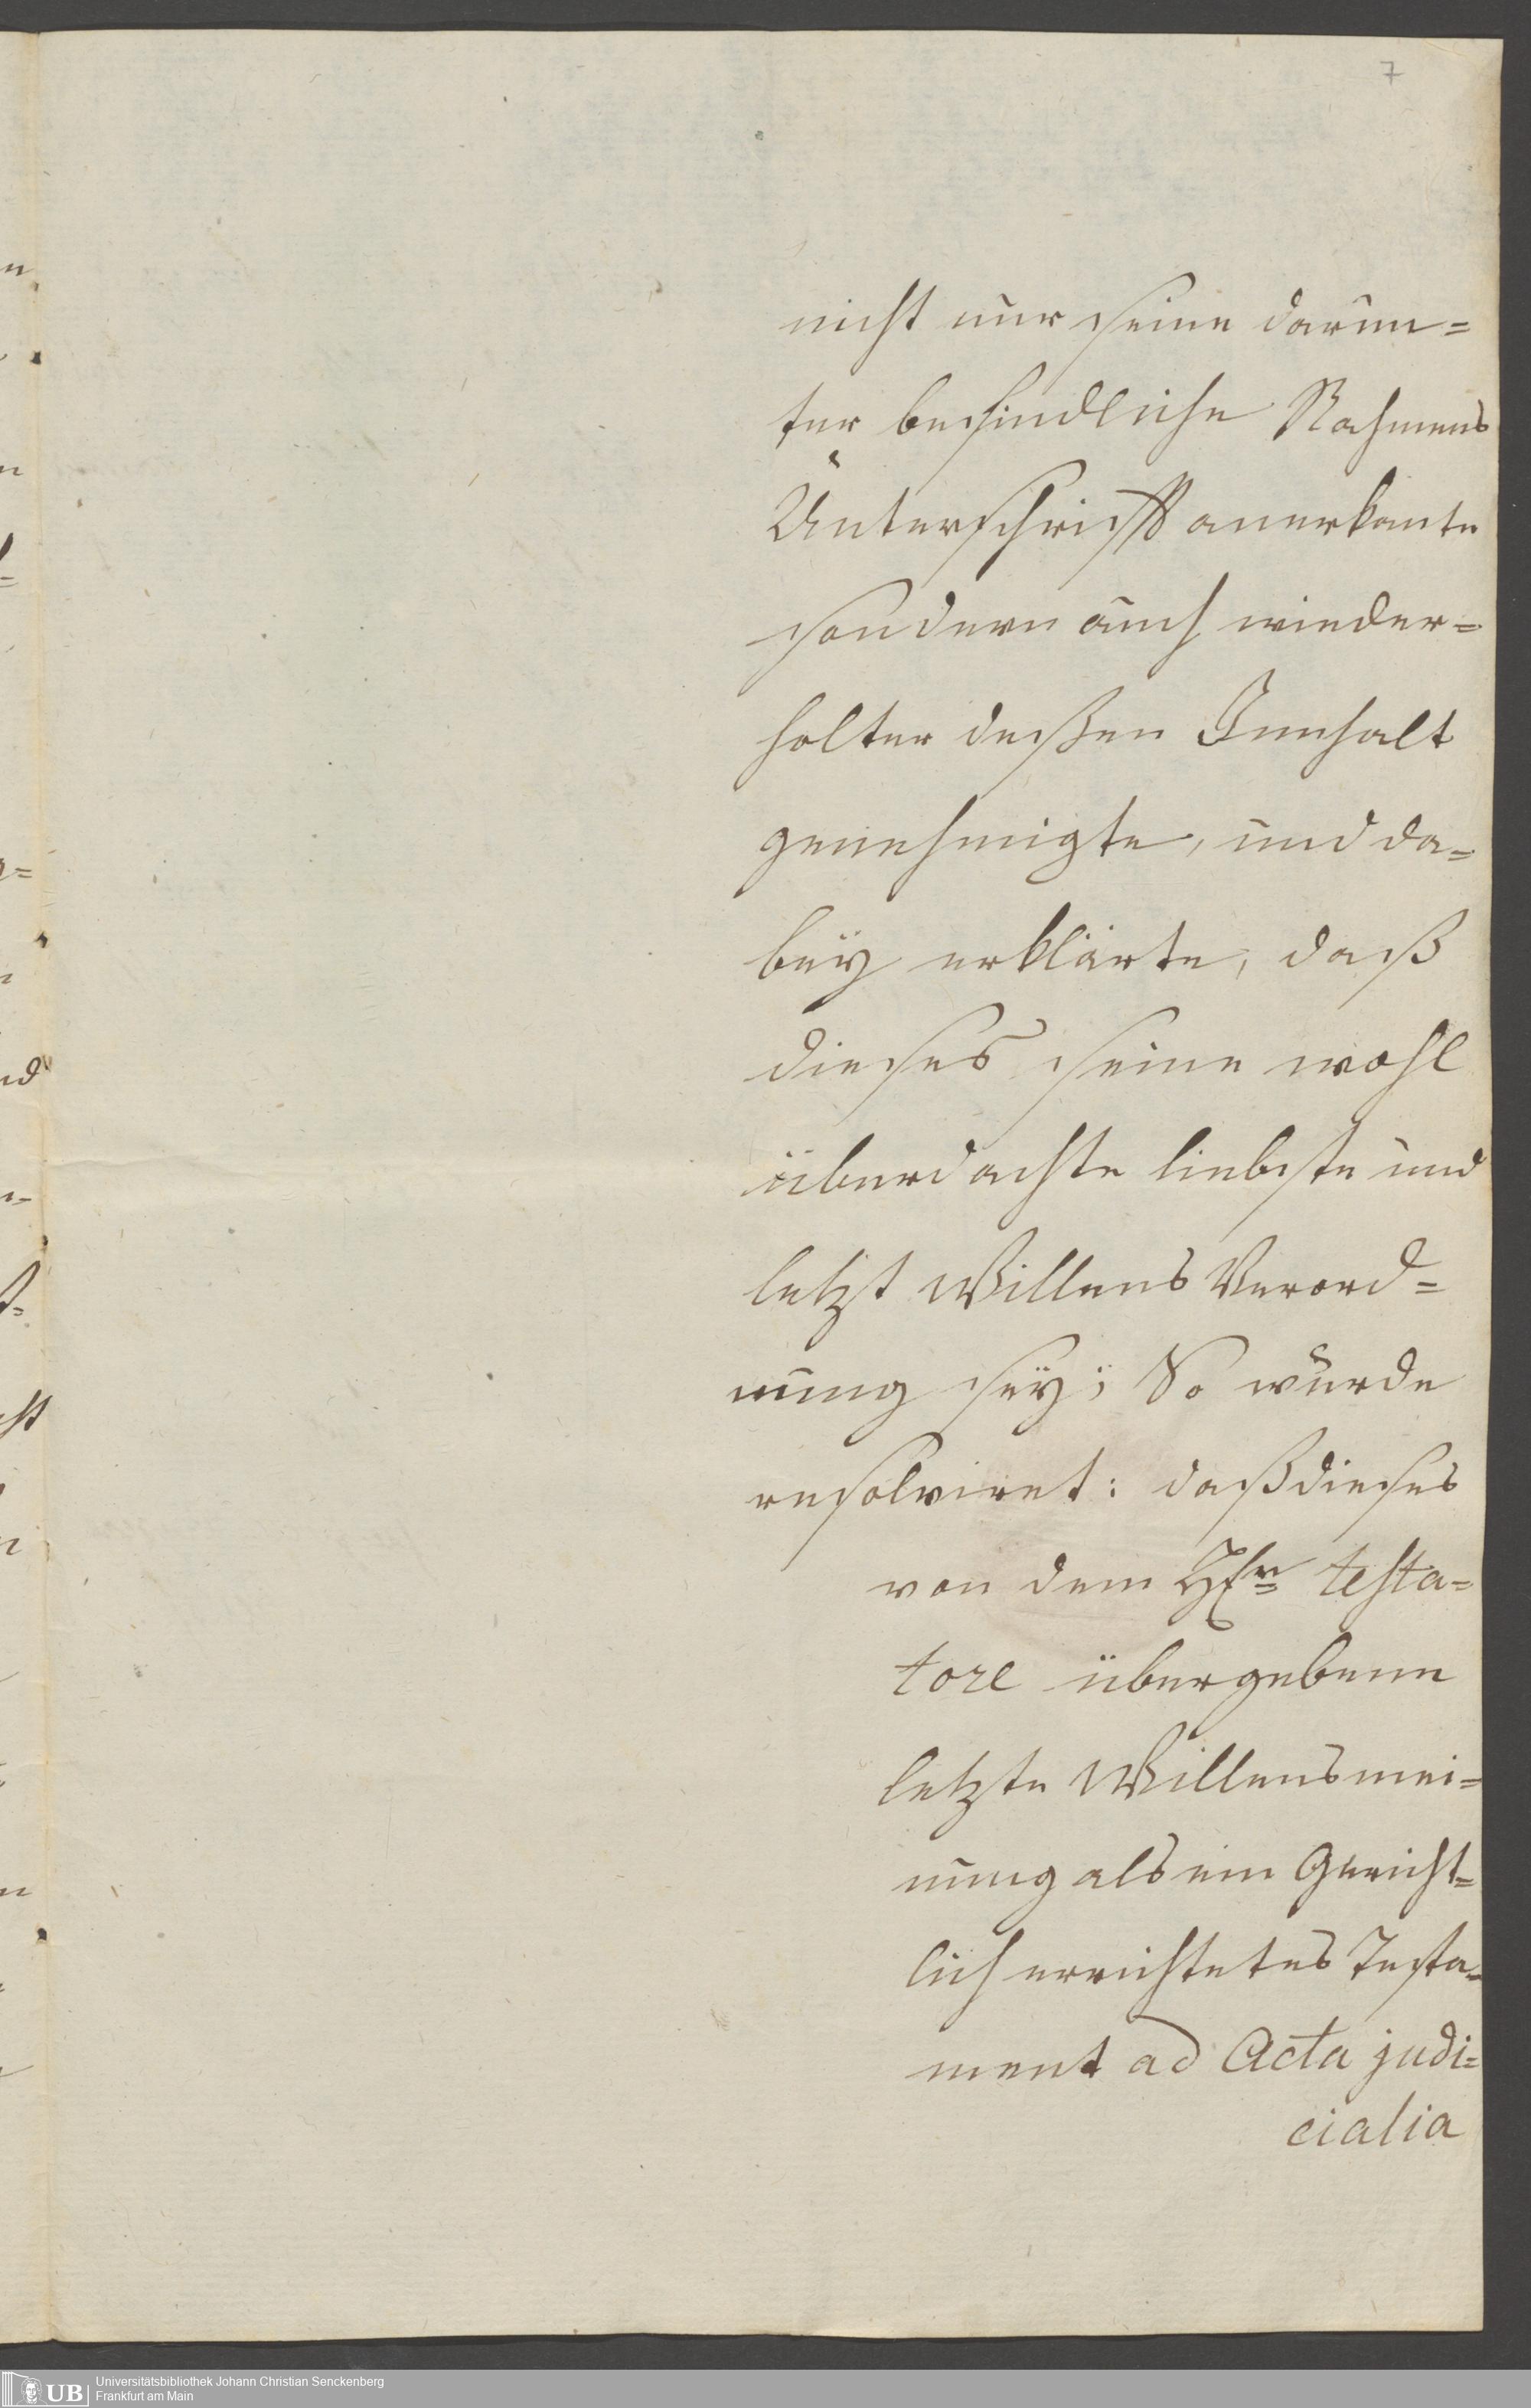 7
nicht nur seine darun=
ter befindliche Nahmens
Unterschrifft anerkante
sondern auch wieder=
holter deßen Innhalt
genehmigte, und da=
bey erklärte, daß
dieses seine wohl
überdachte liebste und
letzt Willens Verord=
nung seÿ; So wurde
resolviret: daß dieses
von dem Hrn testa=
tore übergebene
letzte Willensmei=
nung als ein Gericht=
lich errichtetes Testa=
ment ad Acta judi=
cialia
UB
Universitätsbibliothek Johann Christian Senckenberg
Frankfurt am Main